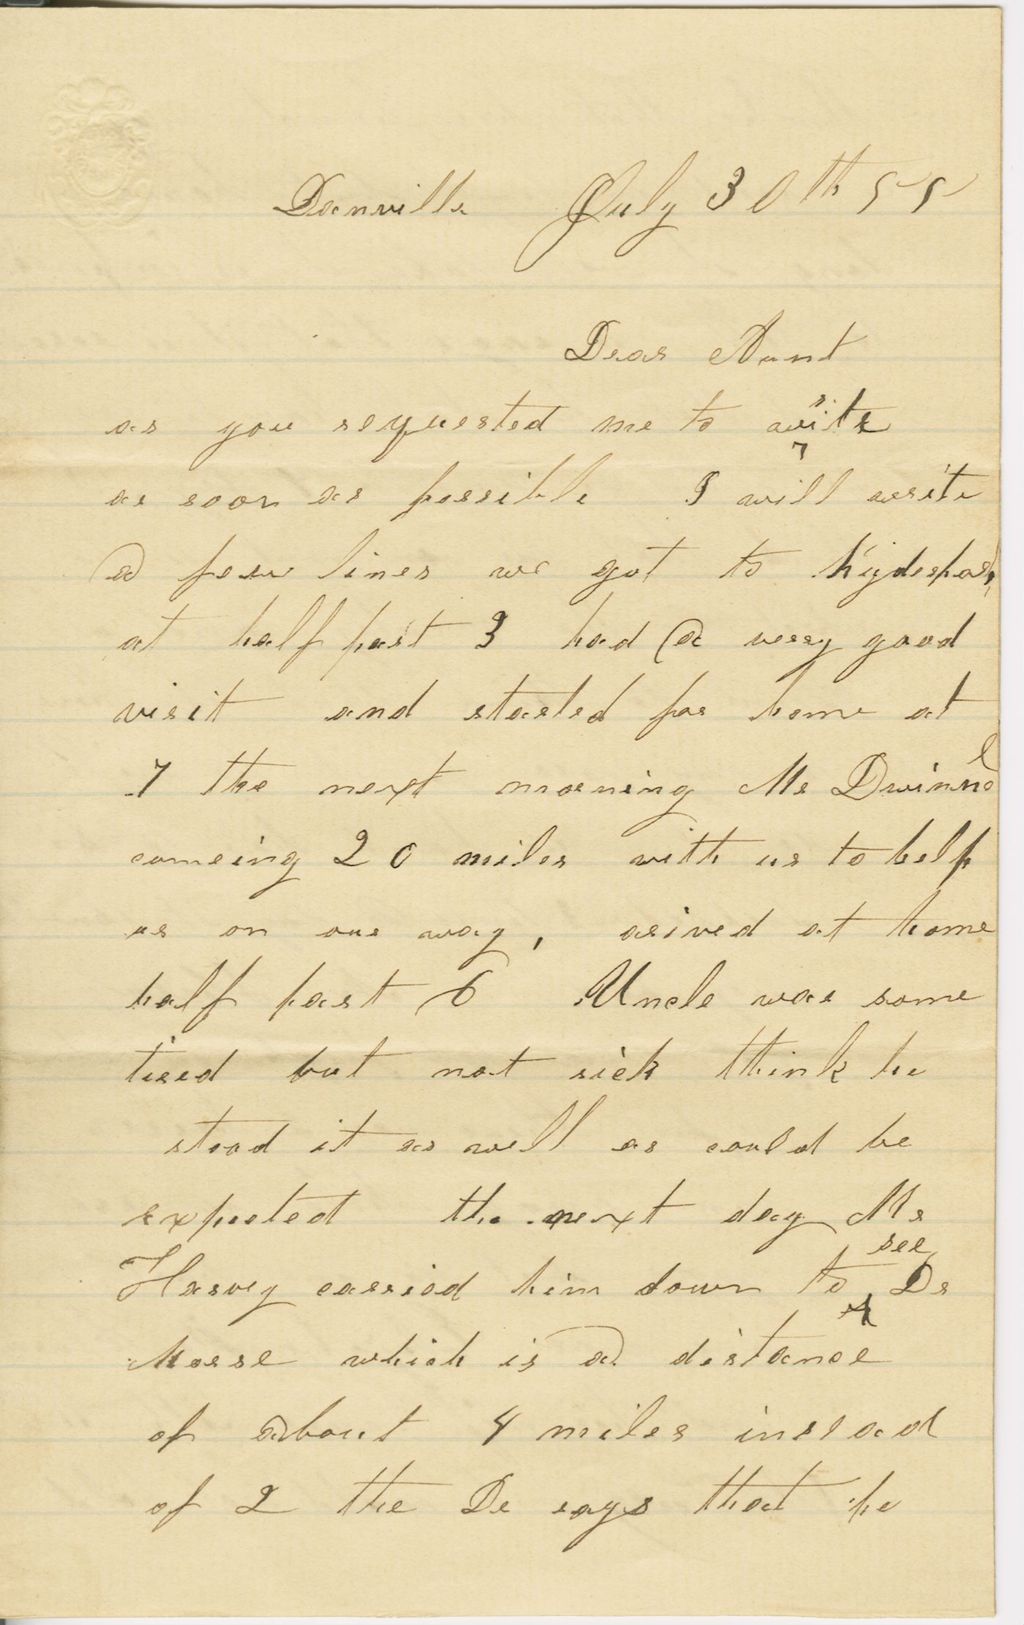 Danville July 30th 55
Dear Aunt
as you requested me to write
as soon as possible I will write
a few lines we got to hydespark
at half past 3 had a very good
visit and started for home at
7 the next morning Mr Dwinnel
comeing 20 miles with us to help
us on our way, arived at home
half past 6 Uncle was some
tired but not sick think he
stood it as well as could be
expected the next day Mr
Harvey carried him down to see Dr
Morse which is a distance
of about 4 miles instead
of 2 the Dr says that he